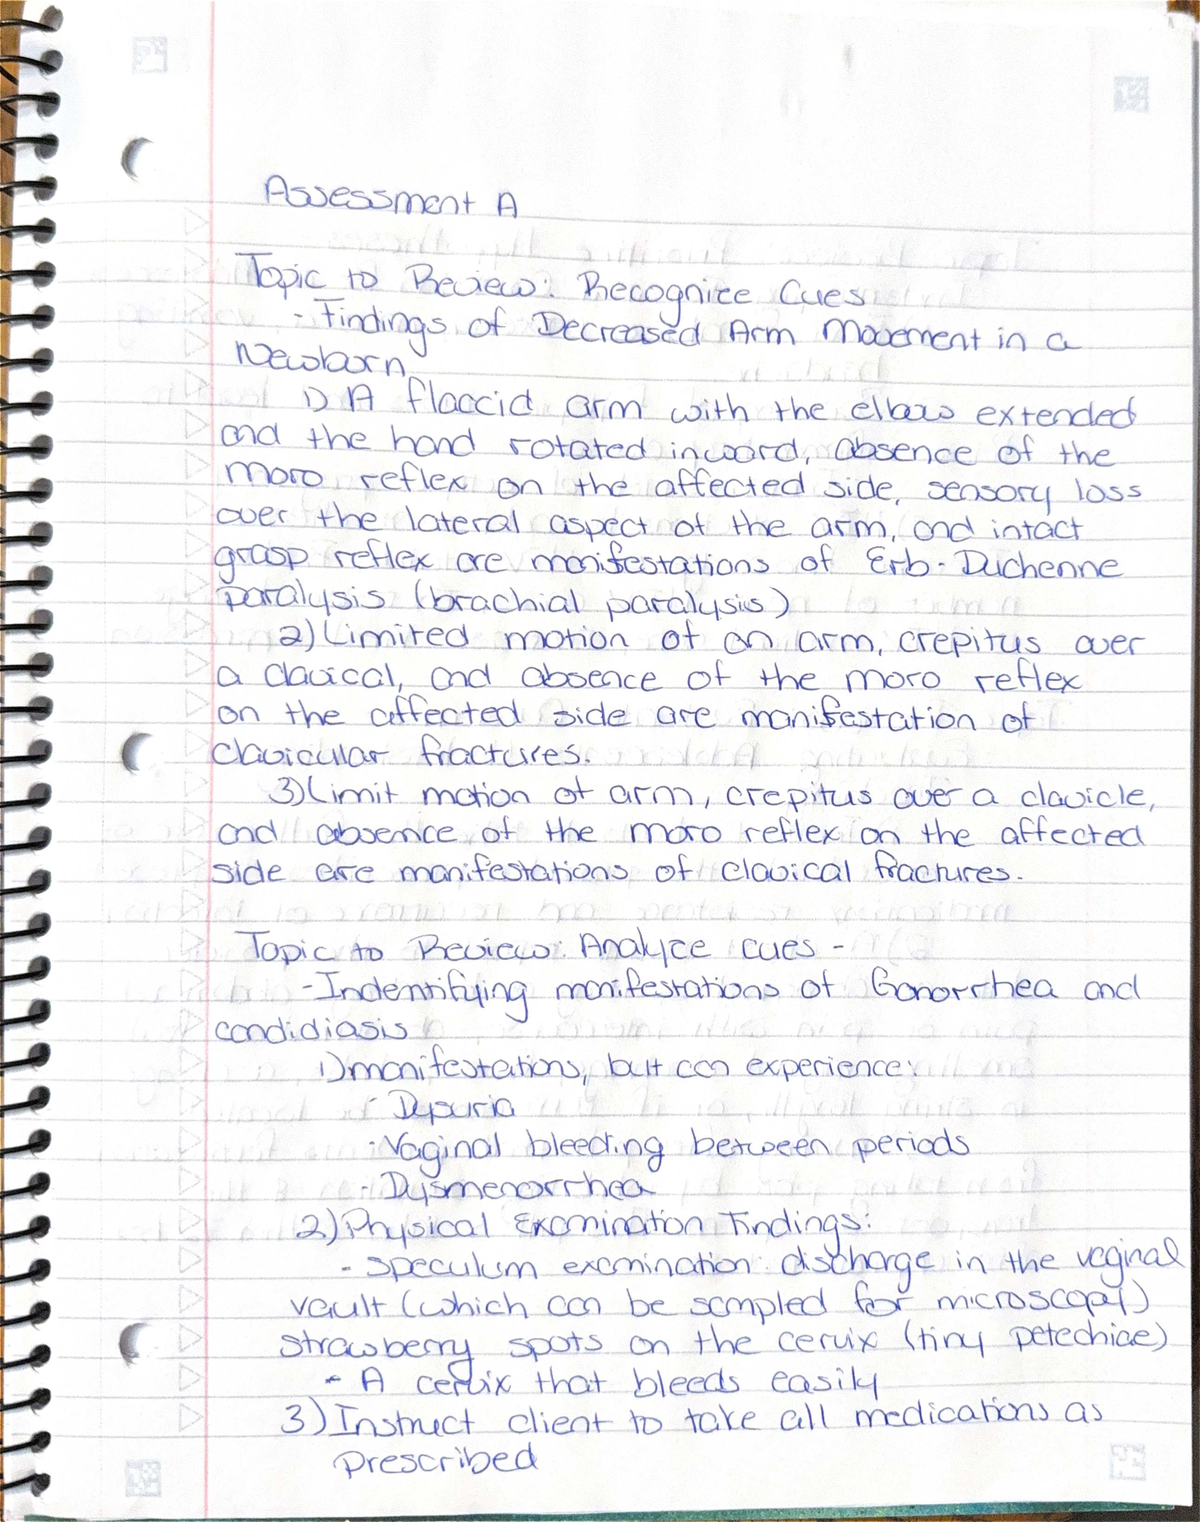 Assessment A
Topic to Review: Recognize Cues
- Findings of Decreased Arm Movement in a
Newborn
1) A flaccid arm with the elbow extended
and the hand rotated inward, absence of the
moro reflex on the affected side, sensory loss
over the lateral aspect of the arm, and intact
grasp reflex are manifestations of Erb-Duchenne
paralysis (brachial paralysis)
2) Limited motion of an arm, crepitus over
a clavical, and absence of the moro reflex
on the affected side are manifestation of
clavicular fractures.
3) Limit motion of arm, crepitus over a clavicle,
and absence of the moro reflex on the affected
side are manifestations of clavical fractures.
Topic to Review: Analyze cues -
- Indentifying manifestations of Gonorrhea and
candidiasis
1) manifestations, but can experience:
- Dypuria
- Vaginal bleeding between periods
- Dysmenorrhea
2) Physical Examination Findings:
- Speculum examination: discharge in the vaginal
vault (which can be sampled for microscopy)
strawberry spots on the cervix (tiny petechiae)
- A cervix that bleeds easily
3) Instruct client to take all medications as
prescribed